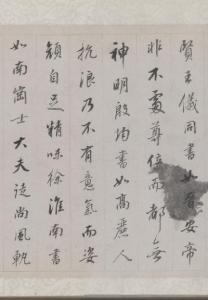 賢王儀同書如晉安帝
非不處尊位而都無
神明殷均書如高麗人
抗浪乃不有意氣而姿
顏自足精味徐淮南書
如南岡士大夫徒尚風軌